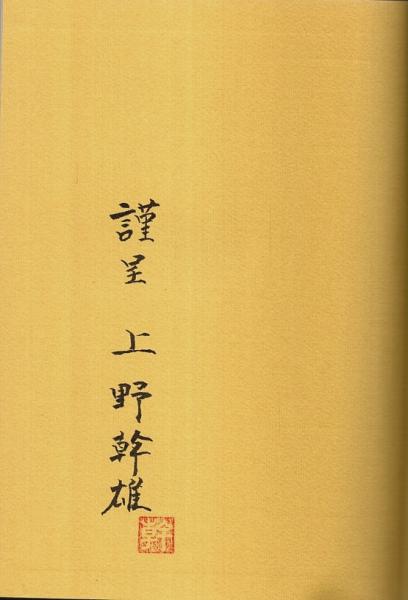 謹呈 上野幹雄
幹